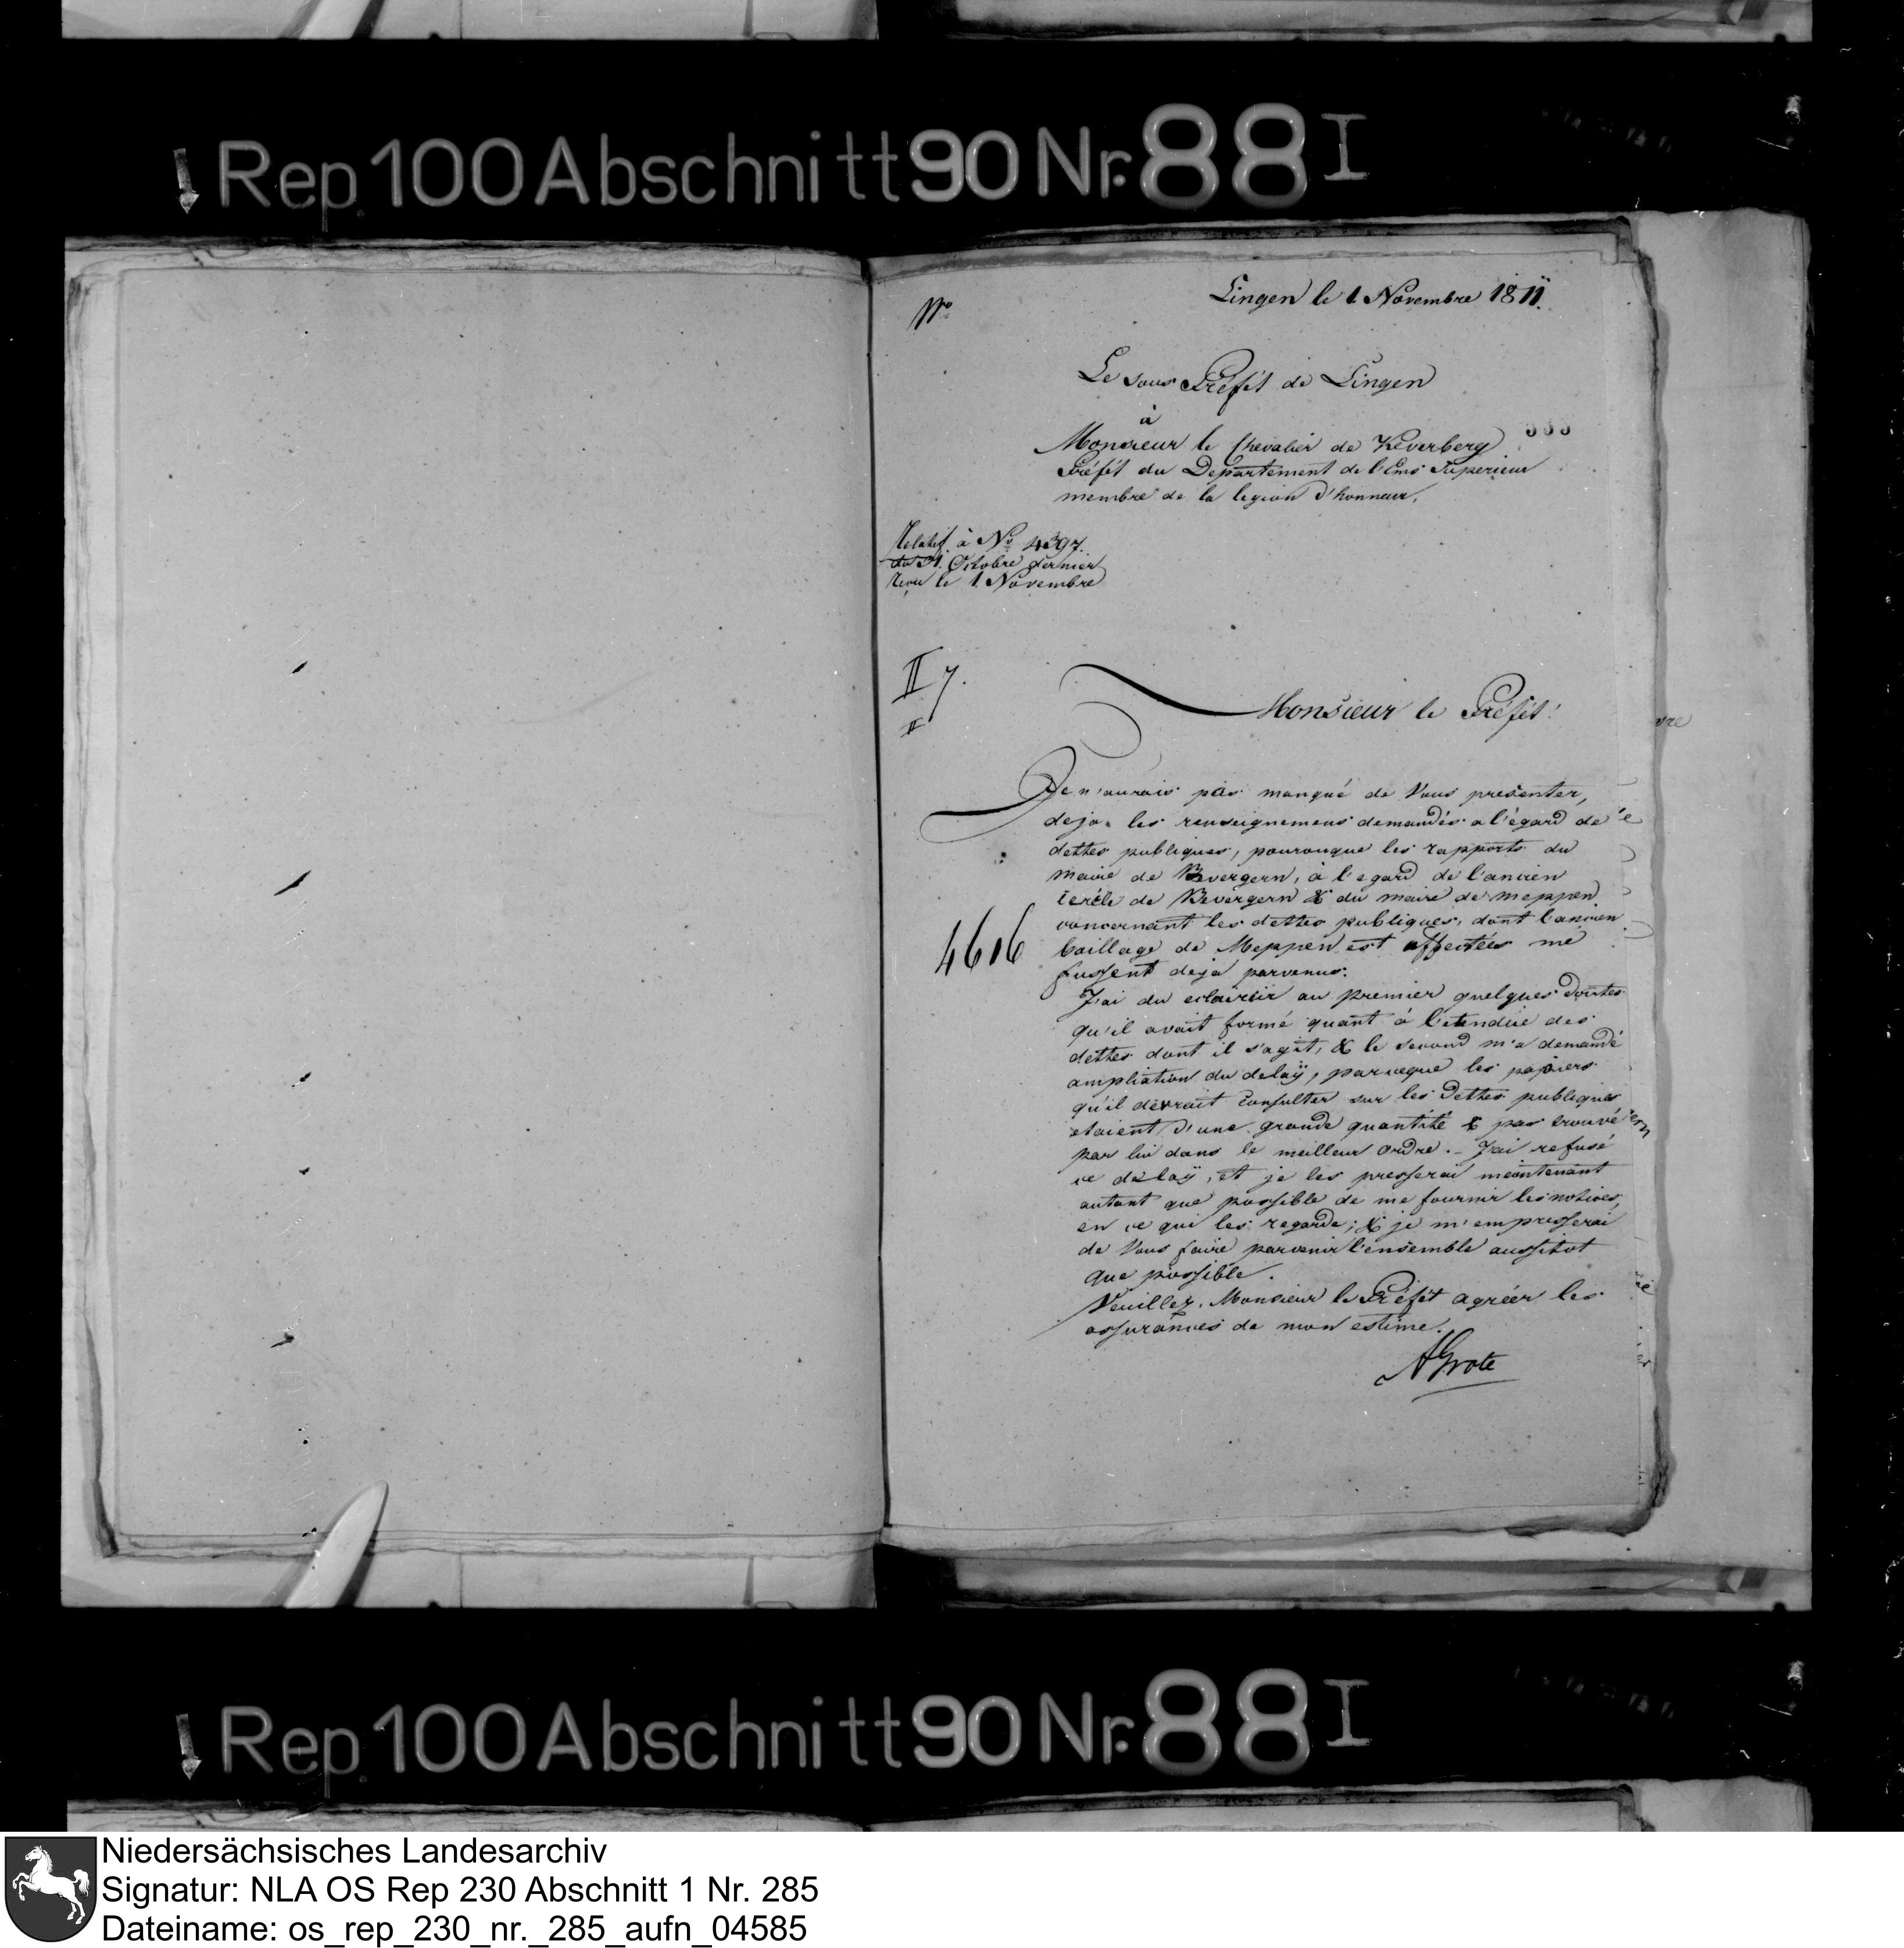 Rep. 100 Abschnitt 90 Nr. 88 I
No
Lingen le 1 Novembre 1811.
Le sous Préfet de Lingen
à
Monsieur le Chevalier de Keverberg
Préfet du Departement de l'Ems Superieur
membre de la legion d'honneur.
Relatif à No 4397.
du 31. Octobre dernier
reçu le 1 Novembre
II 7.
II
Monsieur le Préfet!
Je n'aurais pas manqué de Vous presenter,
deja les renseignemens demandés a l'égard de
dettes publiques, pourvuque les rapports du
maire de Bevergern, à l'egard de l'ancien
cercle de Bevergern & du maire de meppen
concernant les dettes publiques, dont l'ancien
baillage de Meppen est affectées me
fussent deja parvenus.
4616
J'ai du eclaircir au premier quelques doutes
qu'il avait formé quant à l'etendüe des
dettes dont il s'agit, & le second m'a demandé
ampliation du delaÿ, parceque les papiers
qu'il devrait consulter sur les dettes publiques
etaient d'une grande quantité & pas trouvé
par lui dans le meilleur ordre. – J'ai refusé
ce delaÿ, et je les presserai maintenant
autant que possible de me fournir les notices,
en ce qui les regarde; & je m'empresserai
de Vous faire parvenir l'ensemble aussitot
que possible.
Veuillez, Monsieur le Préfet agréer les
assurances de mon estime.
AGrote
Rep. 100 Abschnitt 90 Nr. 88 I
Niedersächsisches Landesarchiv
Signatur: NLA OS Rep 230 Abschnitt 1 Nr. 285
Dateiname: os_rep_230_nr._285_aufn_04585